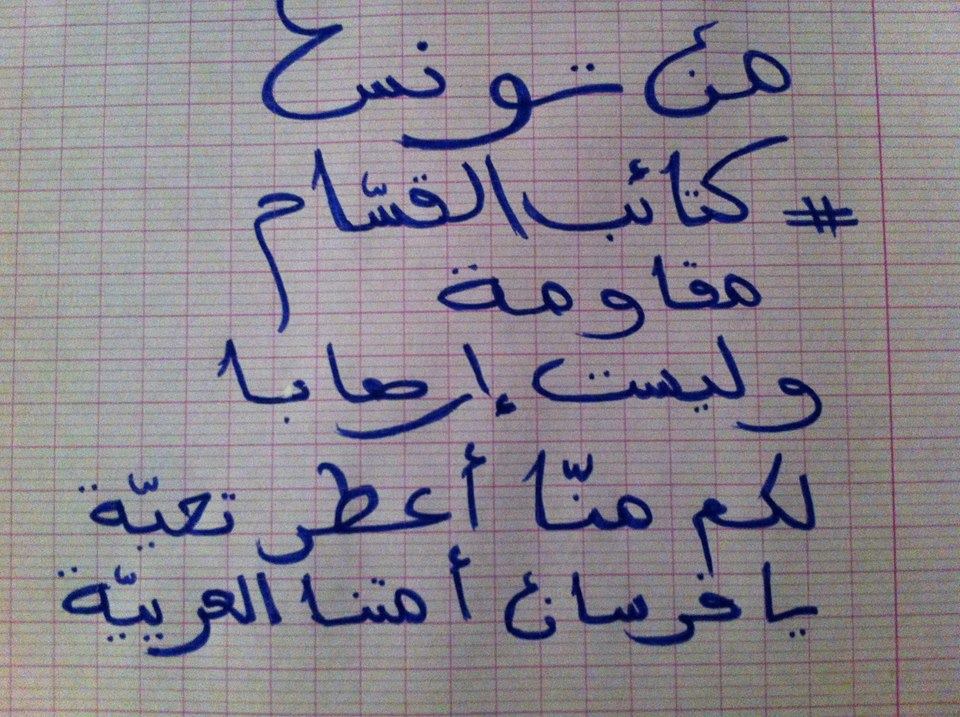 من تونس
# كتائب القسّام
مقاومة
وليست إرهابا
لكم منّا أعطر تحيّة
يا فرسان أمتنا العربيّة